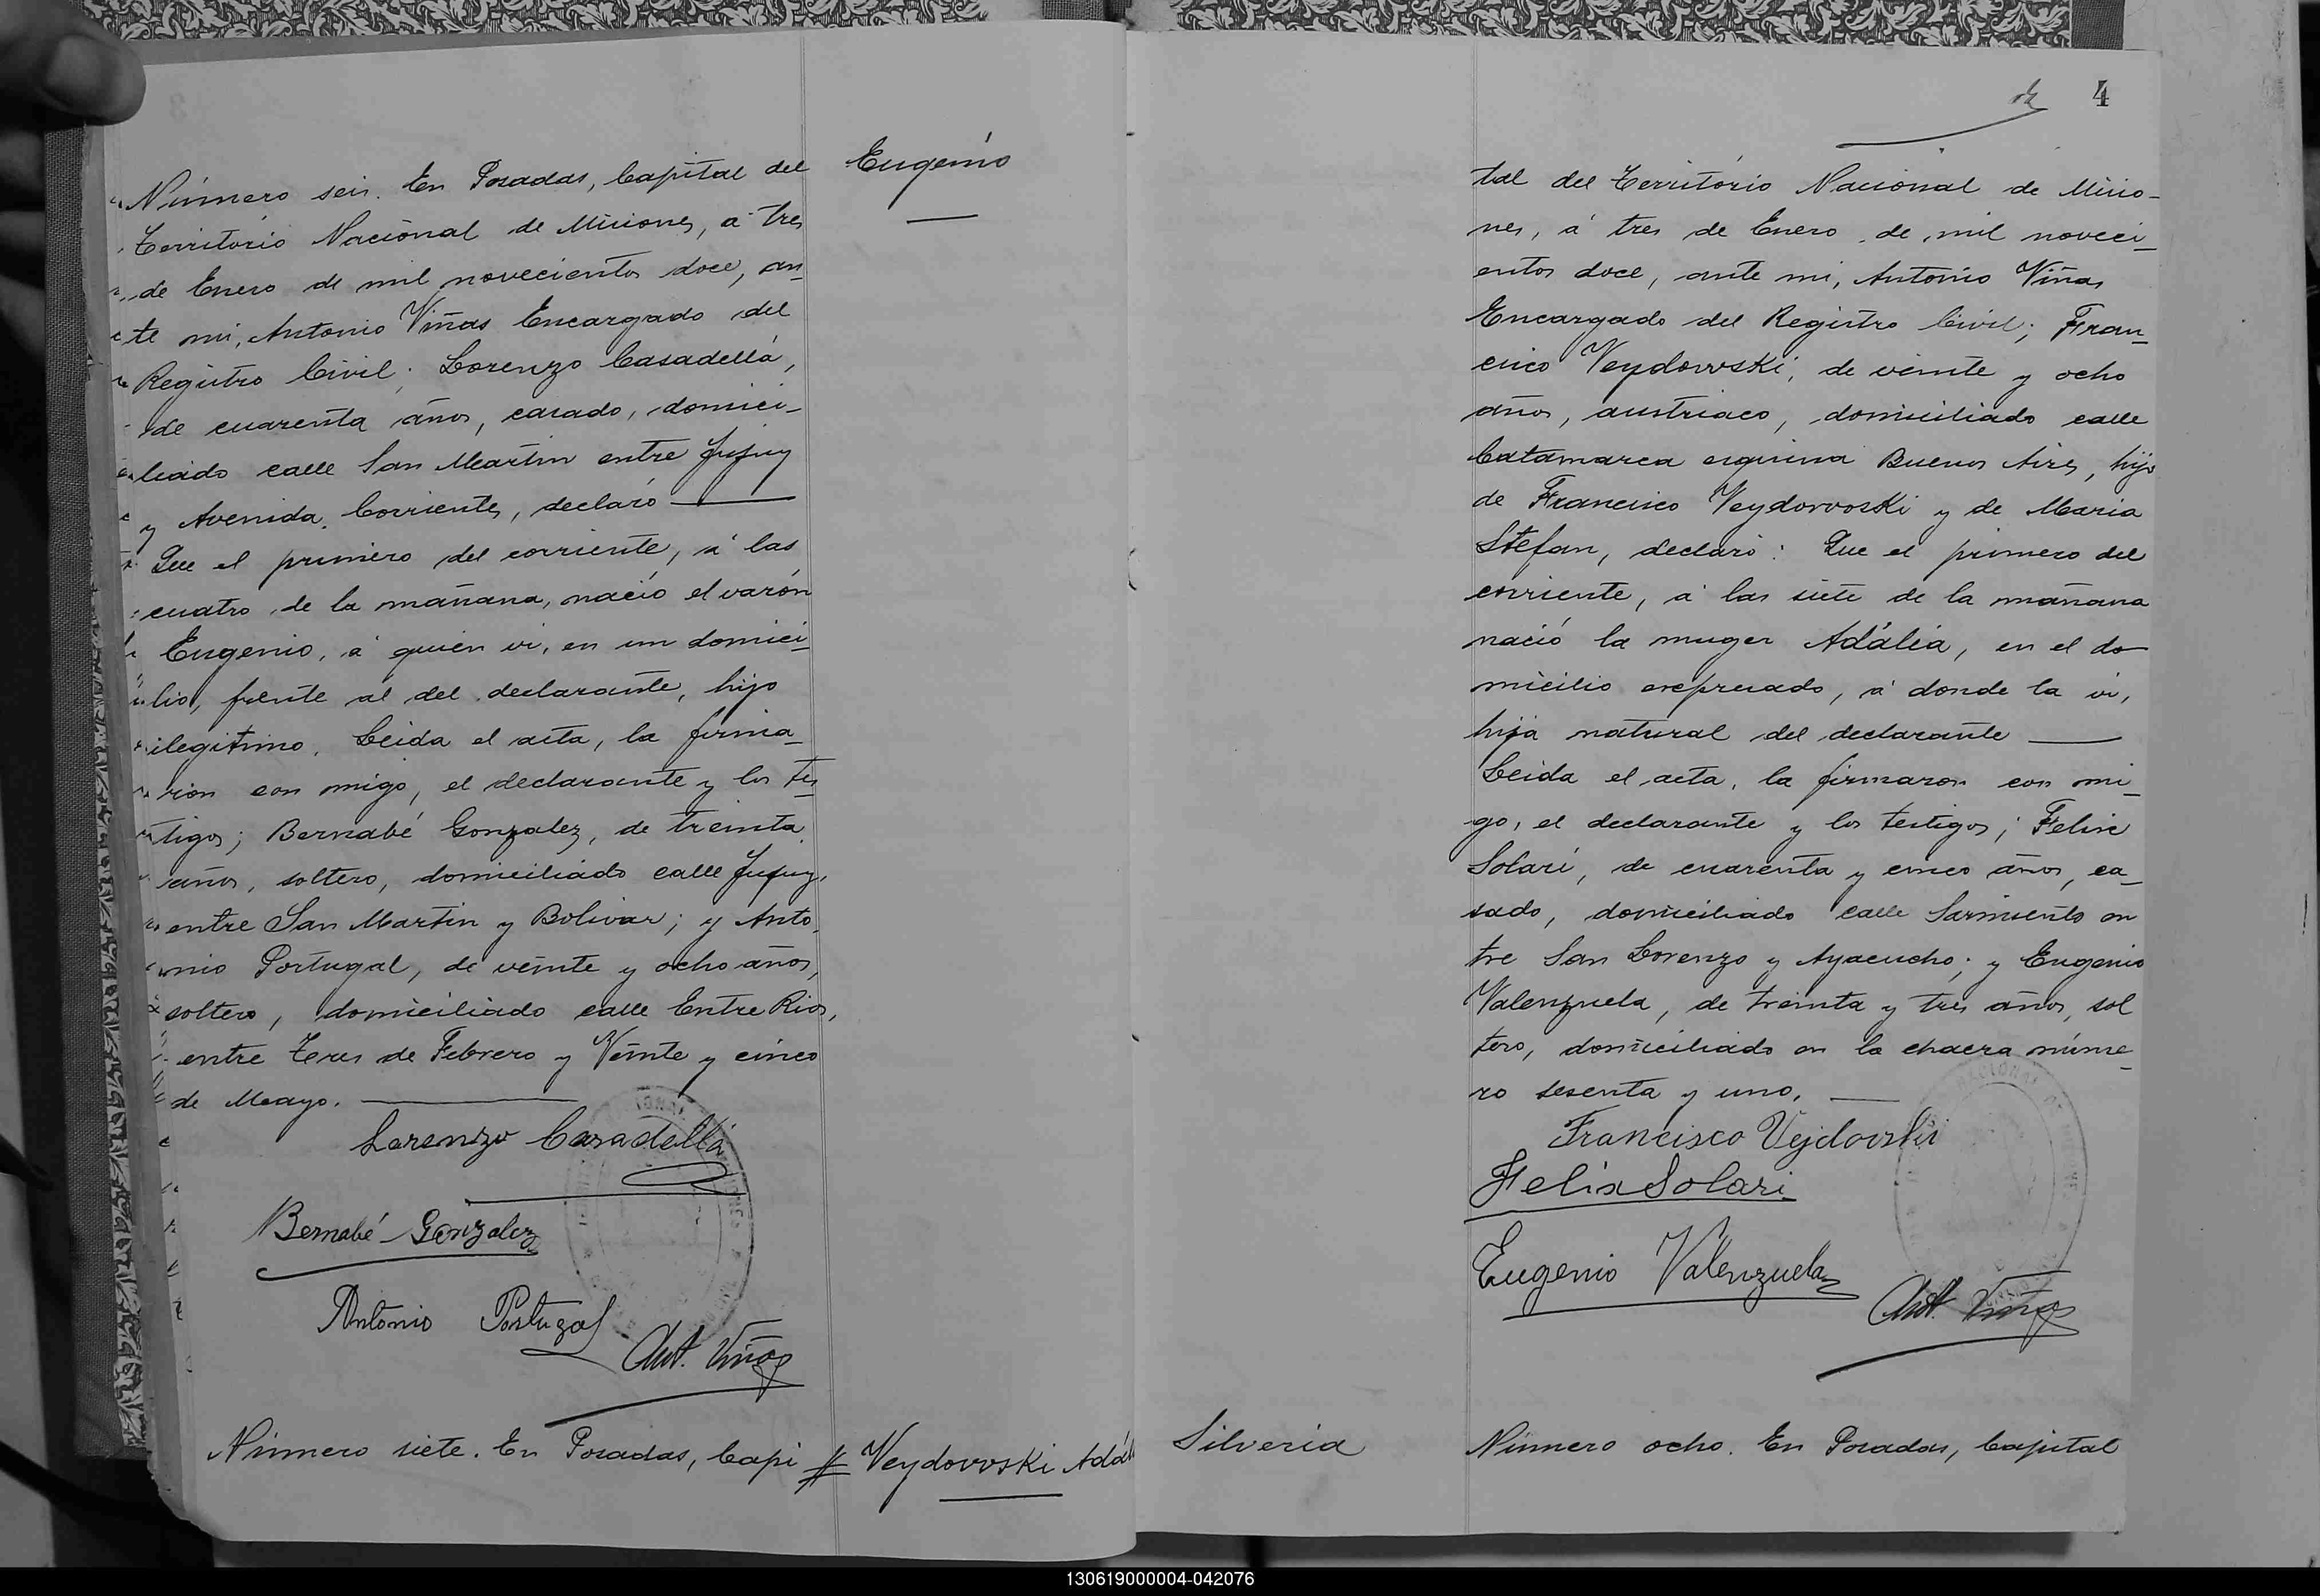 Eugenio
Número seis. En Posadas, Capital del
Territorio Nacional de Misiones, á tres
de Enero de mil novecientos doce, an_
te mi, Antonio Viñas Encargado del
Registro Civil; Lorenzo Casadellá,
de cuarenta años, casado, domici_
liado calle San Martin entre Jujuy
y Avenida Corrientes, declaró
Que el primero del corriente, á las
cuatro de la mañana, nació el varón
Eugenio, á quien vi, en un domici_
lio, frente al del declarante, hijo
ilegitimo. Leida el acta, la firma_
ron con migo, el declarante y los tes_
tigos; Bernabé Gonzalez, de treinta
años, soltero, domiciliado calle Jujuy,
entre San Martin y Bolivar; y Anto
nio Portugal, de veinte y ocho años,
soltero, domiciliado calle Entre Rios,
entre Teres de Febrero y Veinte y cinco
de Mayo.
Lorenzo Casadellá
Bernabé Gonzalez
Antonio Portugal
Ant. Viñas
Número siete. En Posadas, Capi # Veydovvski Adál
4
tal del Territorio Nacional de Misio_
nes, á tres de Enero de mil noveci_
entos doce, ante mi, Antonio Viñas
Encargado del Registro Civil; Fran_
cisco Veydovvski, de veinte y ocho
años, austriaco, domiciliado calle
Catamarca esquina Buenos Aires, hijo
de Francisco Veydovvoski y de Maria
Stefan, declaró: Que el primero del
corriente, á las siete de la mañana
nació la muger Adália, en el do
micilio expresado, á donde la vi,
hija natural del declarante
Leida el acta, la firmaron con mi_
go, el declarante y los testigos; Felix
Solari, de cuarenta y cinco años, ca_
sado, domiciliado calle Sarmiento en
tre San Lorenzo y Ayacucho; y Eugenio
Valenzuela, de treinta y tres años, sol
tero, domiciliado en la chacra núme_
ro sesenta y uno.
Francisco Vejdovski
Felix Solari
Eugenio Valenzuela
Ant. Viñas
Silveria
Número ocho. En Posadas, Capital
130619000004-042076